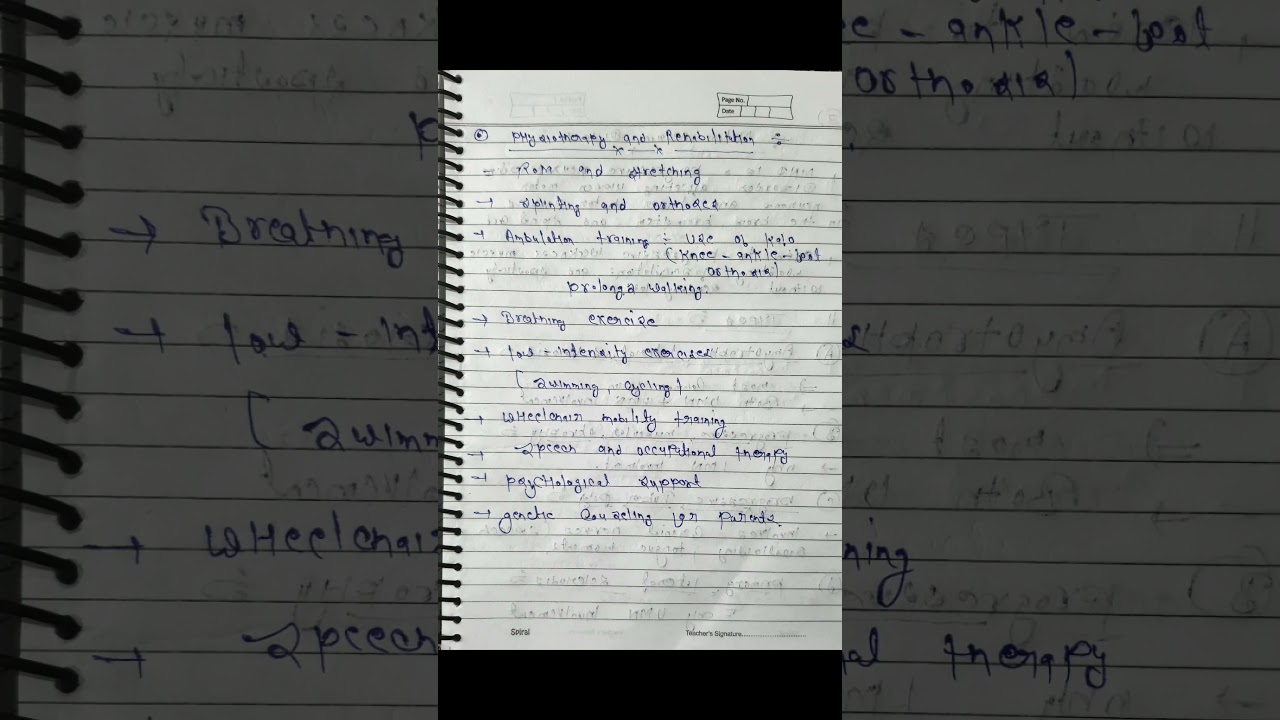 Page No.
Date
Physiotherapy and Rehabilitution ÷
→ Rom and stretching
→ splinting and orthoses
→ Ambulation training ÷ use of KAFO
(Knee - ankle - foot
orthosis)
prolongs walking.
→ Breathing exercise
→ low - intensity exercises
( swimming, cycling)
→ wheelchair mobility training
→ speech and occupational therapy
→ psychological support
→ genetic counseling for parents.
Spiral
Teacher's Signature